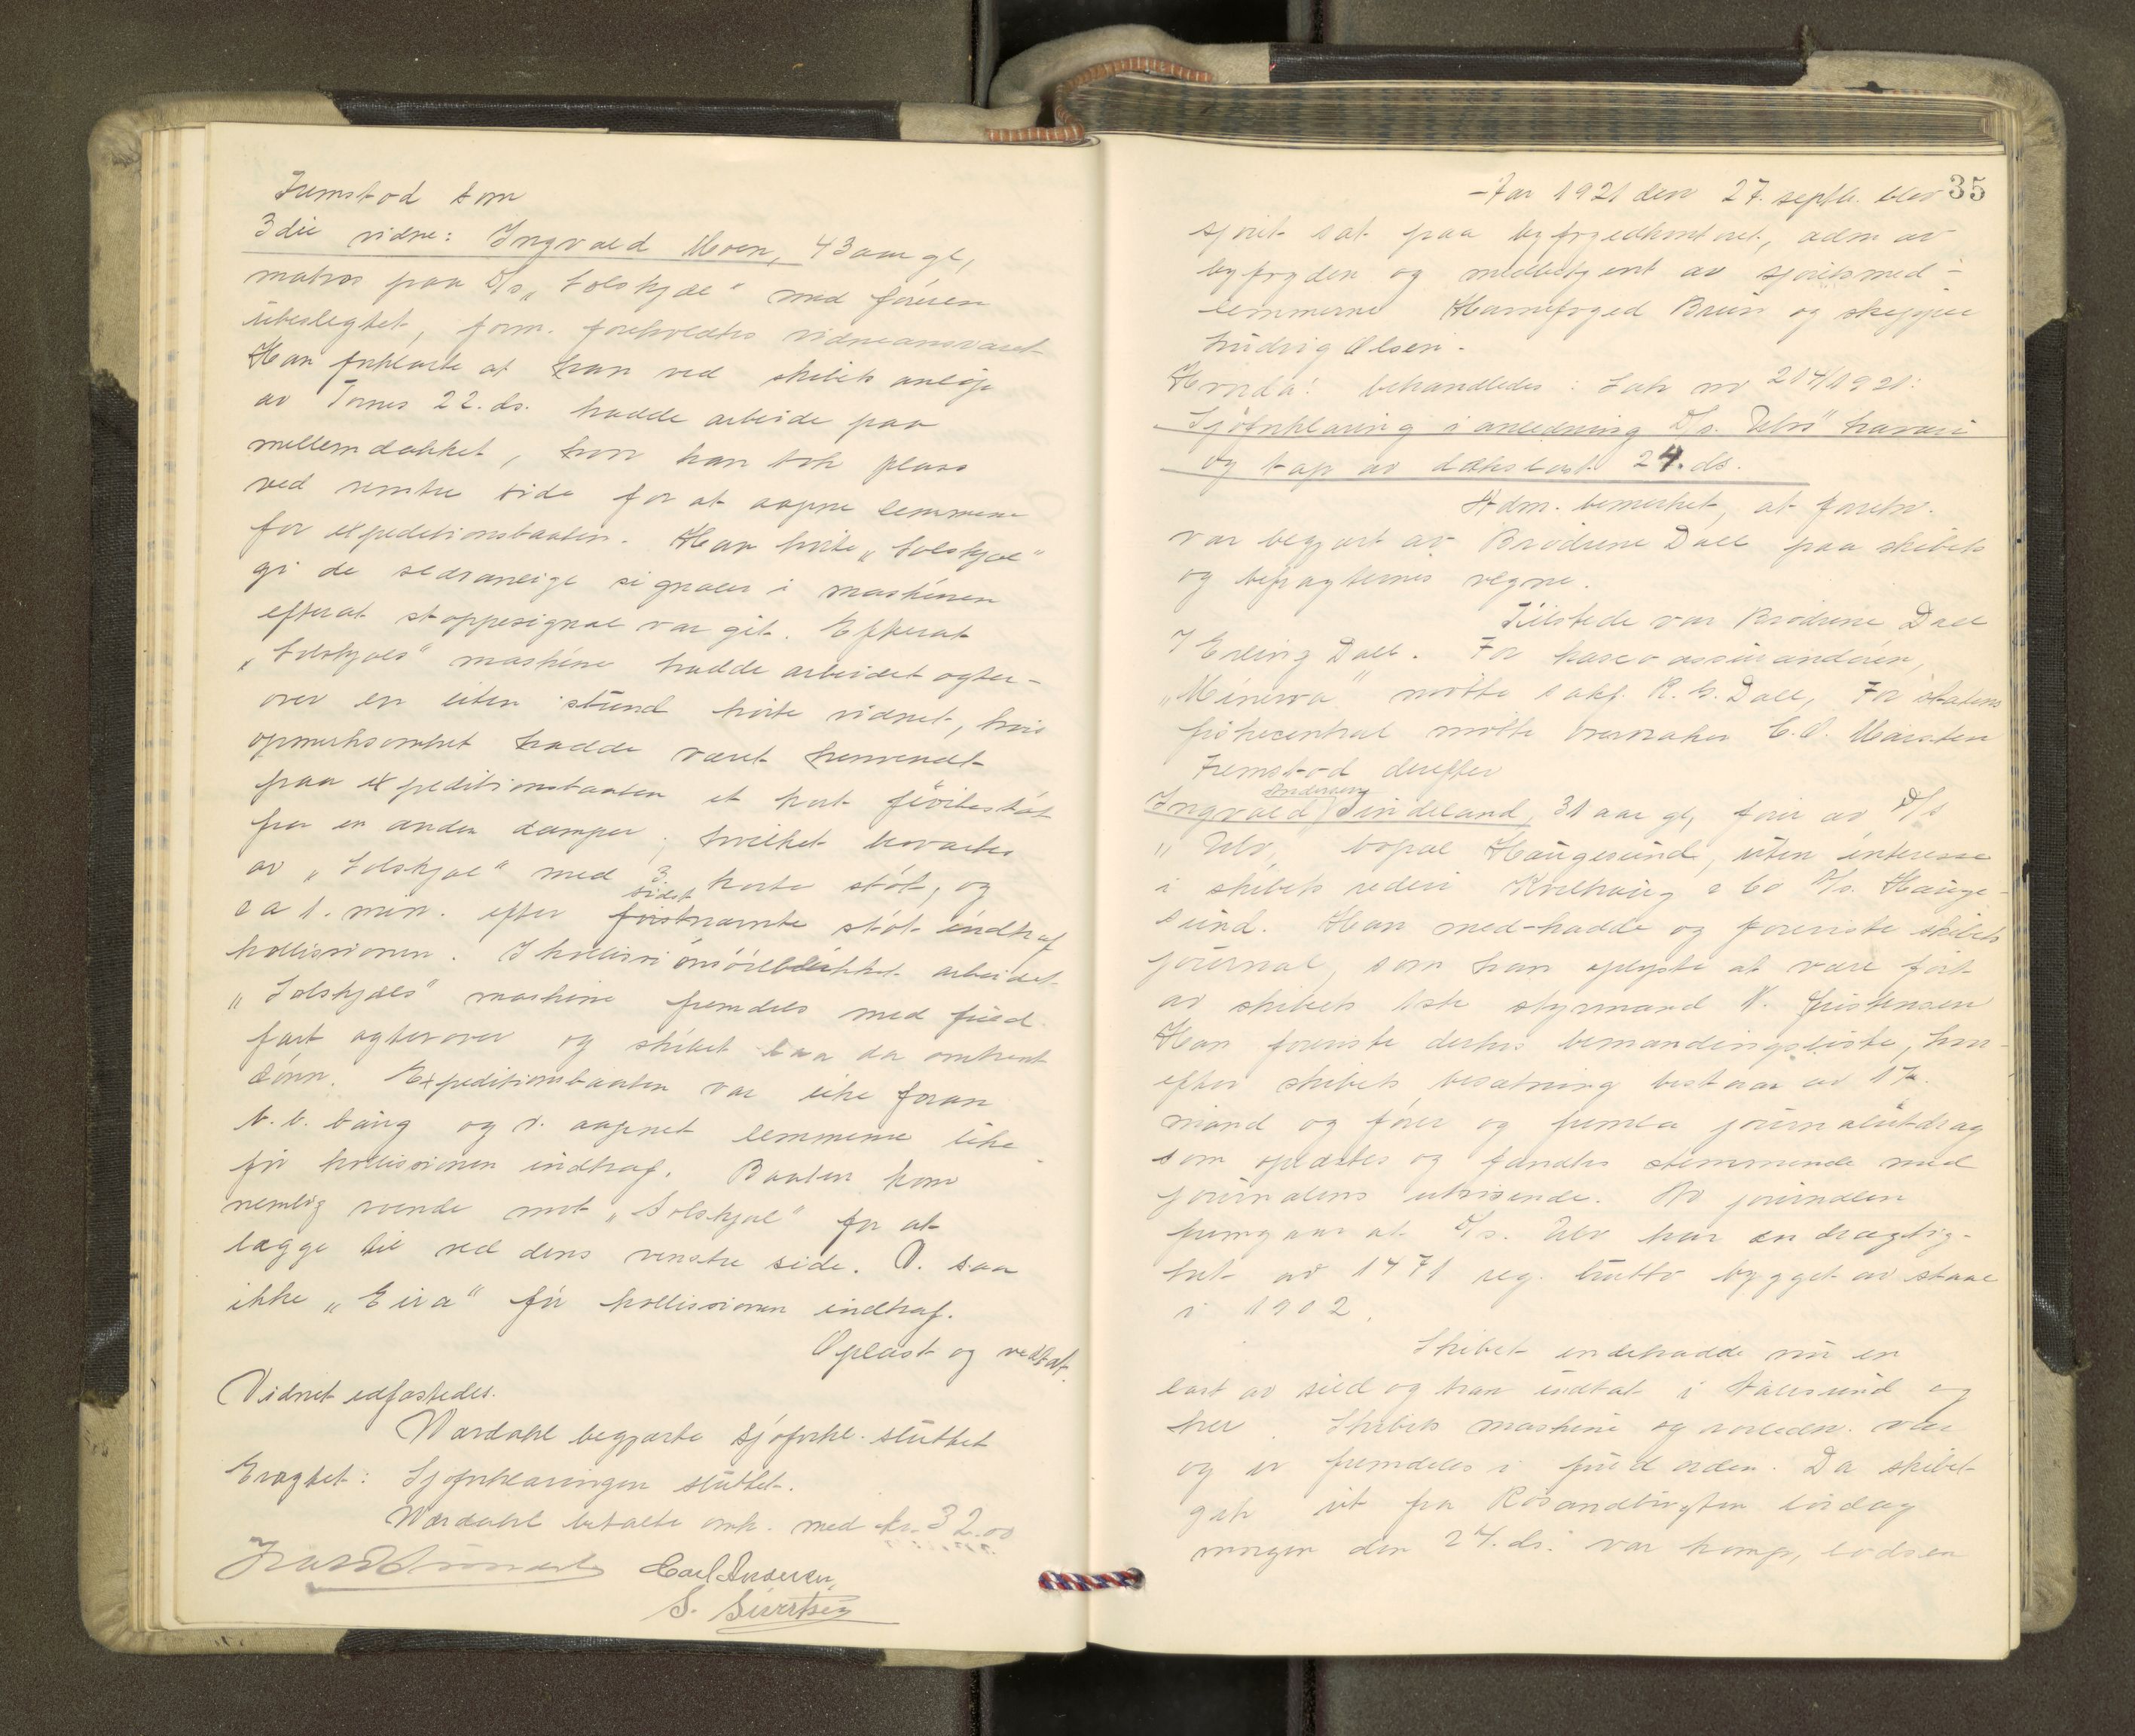 Fremstod som
3die vidne: Ingvald Moen, 43 aar gl,
matros paa D/s „Solskjæl" med føreren
ubeslegtet, form. foreholdtes vidneansvaret
Han forklarte at han ved skibets anløp
av Tornes 22. ds. hadde arbeide paa
mellemdækket, hvor han tok plass
ved venstre side for at aapne lemmene
for expeditionsbaaten. Han hørte „Solskjæl"
gi de sedvanlige signaler i maskinen
efterat stoppesignal var git. Efterat
„Solskjæls" maskine hadde arbeidet agter-
over en liten stund hørte vidnet, hvis
opmerksomhet hadde været henvendt
paa expeditionsbaaten et kort fløitestøt
fra en anden damper, hvilket besvartes
av „Solskjæl" med 3 korte støt, og
ca 1. min. efter sidst førstnævnte støt indtraf
kollissionen. I kollissionsøieblikket arbeidet
„Solskjæls" maskine fremdeles med fuld
fart agterover og skibet laa da omtrent
dønn. Expeditionsbaaten var like foran
b.b. baug og v. aapnet lemmene like
før kollissionen indtraf. Baaten kom
nemlig roende mot „Solskjæl" for at
lægge til ved dens venstre side. V. saa
ikke „Eira" før kollissionen indtraf.
Oplæst og vedtat.
Vidnet edfæstedes.
Wardahl begjærte sjøforkl. sluttet
Eragtet: Sjøforklaringen sluttet.
Wardahl betalte omk. med kr. 32.00
Carl Andersen
S. Sivertsen
35
-Aar 1921 den 27. septbr. blev
sjøret sat paa byfogedkontoret, adm av
byfogden og medbetjent av sjøretsmed-
lemmerne Havnefoged Bruun og skipper
Ludvig Olsen.
Hvorda: behandledes: Sak nr 214/1921:
Sjøforklaring i anledning D/s. Ulvs" havari
og tap av dækslast 24. ds.
Adm. bemerket, at forretn.
var begjært av Brødrene Dall paa skibets
og befragternes vegne.
Tilstede var Brødrene Dall
v/ Erling Dall. For kascoassurandøren,
„Minerva" møtte sakf. R. G. Dall, For statens
fiskecentral møtte overvraker E. O. Maristen
Fremstod derefter
Andersen
Ingvald Sindeland, 31 aar gl, fører av D/s
„Ulv, bopæl Haugesund, uten interesse
i skibets rederi Kolhaug & Co A/s. Hauge-
sund. Han med-hadde og foreviste skibets
journal, som han oplyste at være ført
av skibets 1ste styrmand N. Kristensen
Han foreviste derhos bemandingsliste, hvor-
efter skibets besætning bestaar av 17.
mand og fører og fremla journalutdrag
som oplæstes og fandtes stemmende med
journalens utvisende. Av journalen
fremgaar at D/s. Ulv har en drægtig-
het av 1471 reg. brutto bygget av staal
i 1902.
Skibet indehadde nu en
last av sild og tran indtat i Aalesund og
her. Skibets maskine og rorledn. var
og er fremdeles i fuld orden. Da skibet
gik ut fra Rosandbugten lørdag
morgen den 24. ds. var komp, lodsen